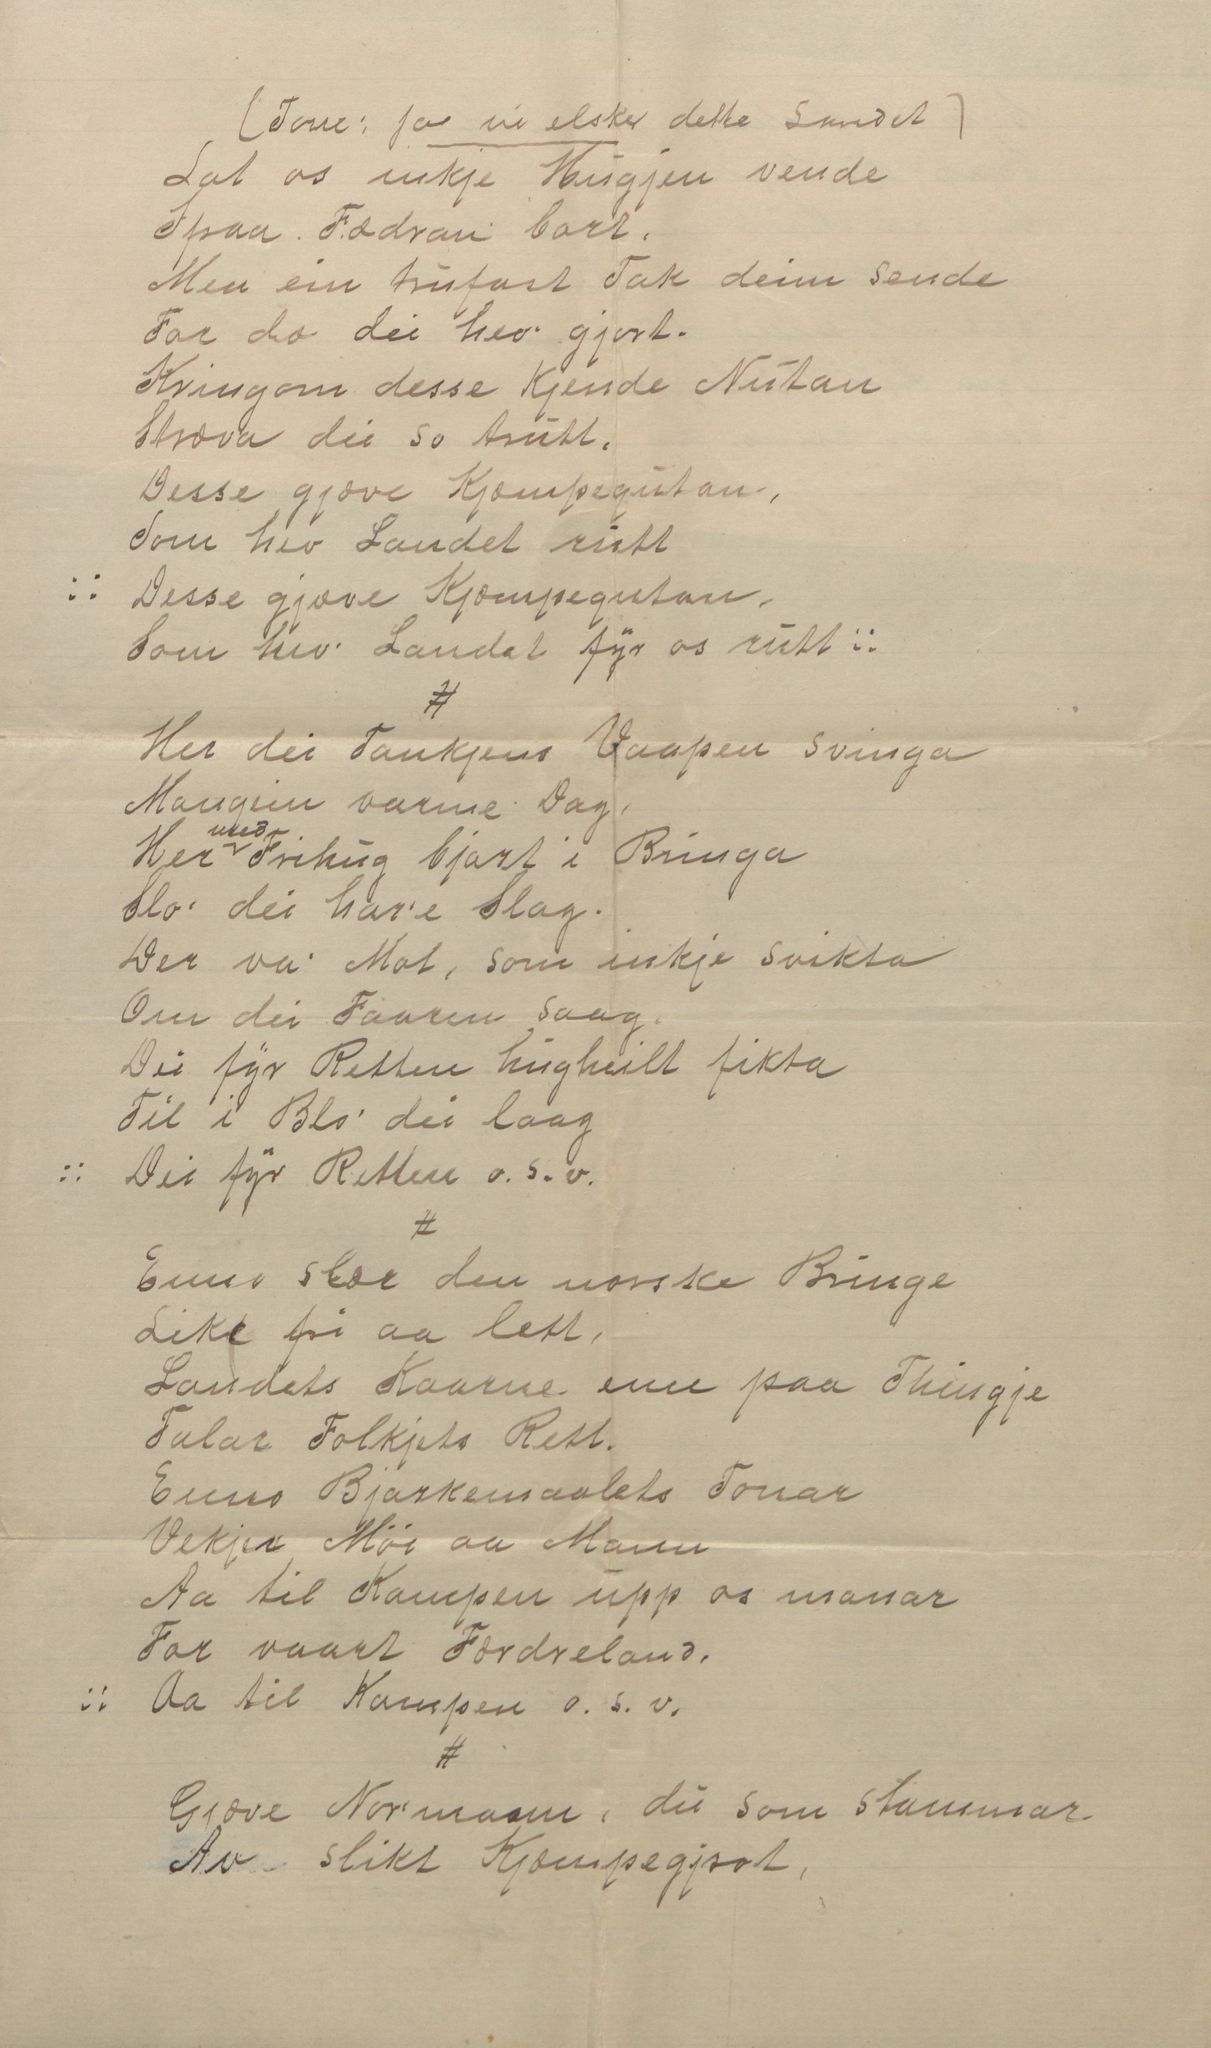 (Tone: Ja vi elsker dette Landet)
Lat os inkje Hugjen vende
Ifraa Fædran bort.
Men ein trufast Tak deim sende
For dæ dei hev gjort.
Kringom desse kjende Nutan
Stræva dei so trutt.
Desse gjæve Kjæmpegutan,
Som hev Landet rutt
:: Desse gjæve Kjæmpegutan,
Som hev Landet fyr os rutt ::
#
Her dei Tankjens Vaapen svinga
Mangein varme Dag,
Her med Frihug bjart i Bringa
Slo' dei har'e Slag.
Der va' Mot, som inkje svikta
Om dei Faaren saag.
Dei fyr Retten hugheilt fikta
Til i Blo' dei laag
:: Dei fyr Retten o.s.v.
#
Enno slær den norske Bringe
Like fri aa lett,
Landets Kaarne enn paa Thingje
Talar Folkjets Rett.
Enno Bjarkemaalets Tonar
Vekjer Möi aa Mann
Aa til Kampen upp os manar
For vaart Fædreland.
:: Aa til Kampen o.s.v.
#
Gjæve Nor'mann, du som stammar
Av slikt Kjæmpegjrot,